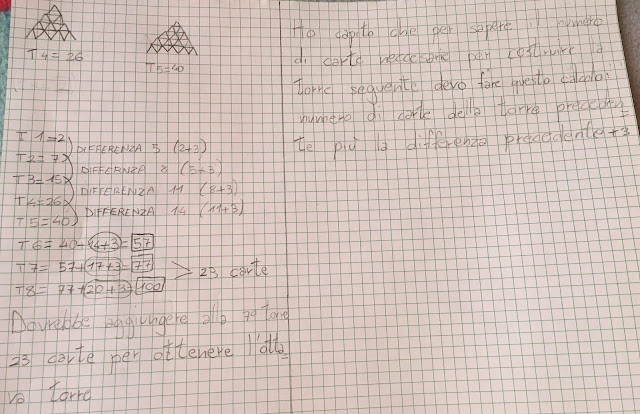 T4=26
T5=40
T1=2
DIFFERENZA 5 (2+3)
T2=7
DIFFERNZA 8 (5+3)
T3=15
DIFFERENZA 11 (8+3)
T4=26
DIFFERENZA 14 (11+3)
T5=40
T6=40+14+3=57
T7=57+17+3=77
23 carte
T8=77+20+3=100
Dovrebbe aggiungere alla 7° torre
23 carte per ottenere l'otta
va torre
Ho capito che per sapere il numero
di carte neccesarie per costruire la
torre seguente devo fare questo calcolo:
numero di carte della torre preceden
te più la differenza precedente +3